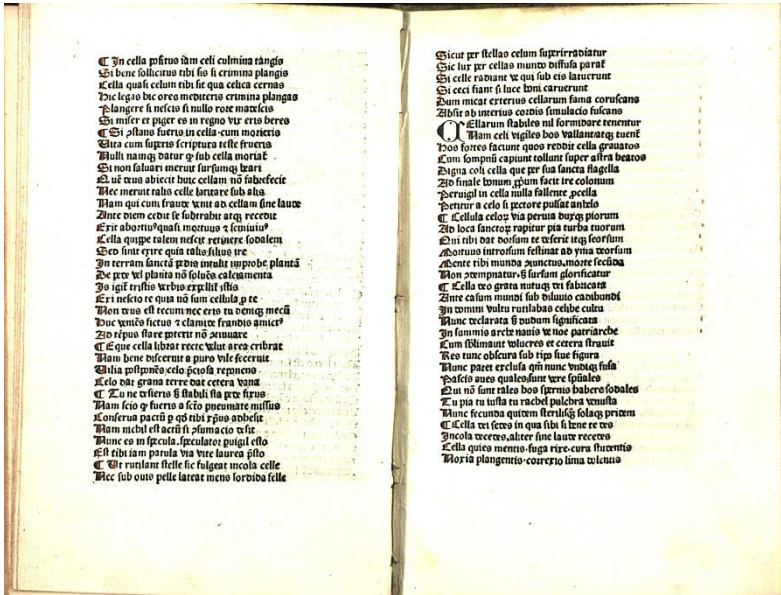 ¶ In cella positus iam celi culmina tangis
Si bene sollicitus tibi sis si crimina plangis
Cella quasi celum tibi sit qua celica cernas
Hic legas hic ores mediteris crimina plangas
Plangere si nescis si nullo rore madescis
Si miser et piger es in regno vix eris heres
¶ Si ꝯstans fueris in cella cum morieris
Vita cum superis scriptura teste frueris
Nulli namqꝫ datur ꝙ sub cella moriat᷑
Si non saluari meruit sursumqꝫ leuari
Quē deus abiecit huic cellam nō
Nec meruit talis celle latitare sub alis
Nam qui cum fraude venit ad cellam sine laude
Ante diem cedit se subtrahit atqꝫ recedit
Exit abortiuꝰ quasi mortuus ⁊ seniuiuꝰ
Cella quippe talem nescit retinere sodalem
Sed sinit exire quia talis filius ire
In terram sanctā pedis intulit improbe plantā
De pede vel planta nō soluēs calciamenta
Is igit᷑ tristis verbis expellit᷑ istis
Exi nescio te quia nō sum cellula ꝓ te
Non deus est tecum nec eris tu deniqꝫ mecū
Huc veniēs fictus ⁊ clamide fraudis amictꝰ
Ad tēpus stare poterit nō
¶ Eque cella librat recte velut area cribrat
Nam bene discernit a puro vile secernit
Vilia postponēs celo p̄ciosa reponens
Celo dat grana terre dat cetera vana
¶ Tu ne desieris ꝫ stabili sta pede fixus
Nam scio ꝙ fueris a sc̄to pneumate missus
Conserua pactū ꝑ qd̄ tibi xp̄us adhesit
Nam nichil est actū si ꝯsumacio desit
Nunc es in specula speculator puigil esto
Est tibi iam patula via vite laurea p̄sto
¶ Vt rutilant stelle sic fulgeat incola celle
Nec sub ouis pelle lateat mens sordida felle
Sicut per stellas celum superirradiatur
Sic lux per cellas mundo diffusa parat᷑
Si celle radiant ve qui sub eis latuerunt
Si ceci fiant si luce boni caruerunt
Dum micat exterius cellarum fama coruscans
Absit ab interius cordis simulacio fuscans
Cellarum stabiles nil formidare tenentur
Nam celi vigiles hos vallant atqꝫ tuent᷑
Hos fortes faciunt quos reddit cella grauatos
Cum sompnū capiunt tollunt super astra beatos
Digna coli cella que per sua sancta flagella
Ad finale bonum ꝓpum facit ire colonum
Peruigil in cella nulla fallente ꝓcella
Petitur a celo si pectore pulsat anhelo
¶ Cellula celoꝝ via peruia duxqꝫ piorum
Ad loca sanctoꝝ rapitur pia turba tuorum
Qui tibi dat dorsum te deserit itqꝫ deorsum
Mortuus introrsum festinat ad yma deorsum
Mente tibi munda ꝯiunctus morte secūda
Non ꝯtempnatur ꝫ sursum glorificatur
¶ Cella deo grata nutuqꝫ dei fabricata
Ante casum mundi sub diluuio cadibundi
In domini vultu rutilabas celibe cultu
Nunc declarata ꝫ dudum significata
In summis arche nauis ve noe patriarche
Cum sb̄limauit volucres et cetera strauit
Res tunc obscura sub tipo siue figura
Nunc patet exclusa qm̄ nunc vndiqꝫ fusa
Pascis aues quales sunt vere spūales
Qui nō sunt tales hos spernis habere sodales
Tu pia tu iusta tu rachel pulchra venusta
Nunc fecunda quidem sterilisqꝫ solaqꝫ pridem
¶ Cella dei sedes in qua sibi si bene te des
Incola dece des aliter sine laude recedes
Cella quies mentis fuga rixe cura studentis
Noxia plangentis correxio lima dolentis